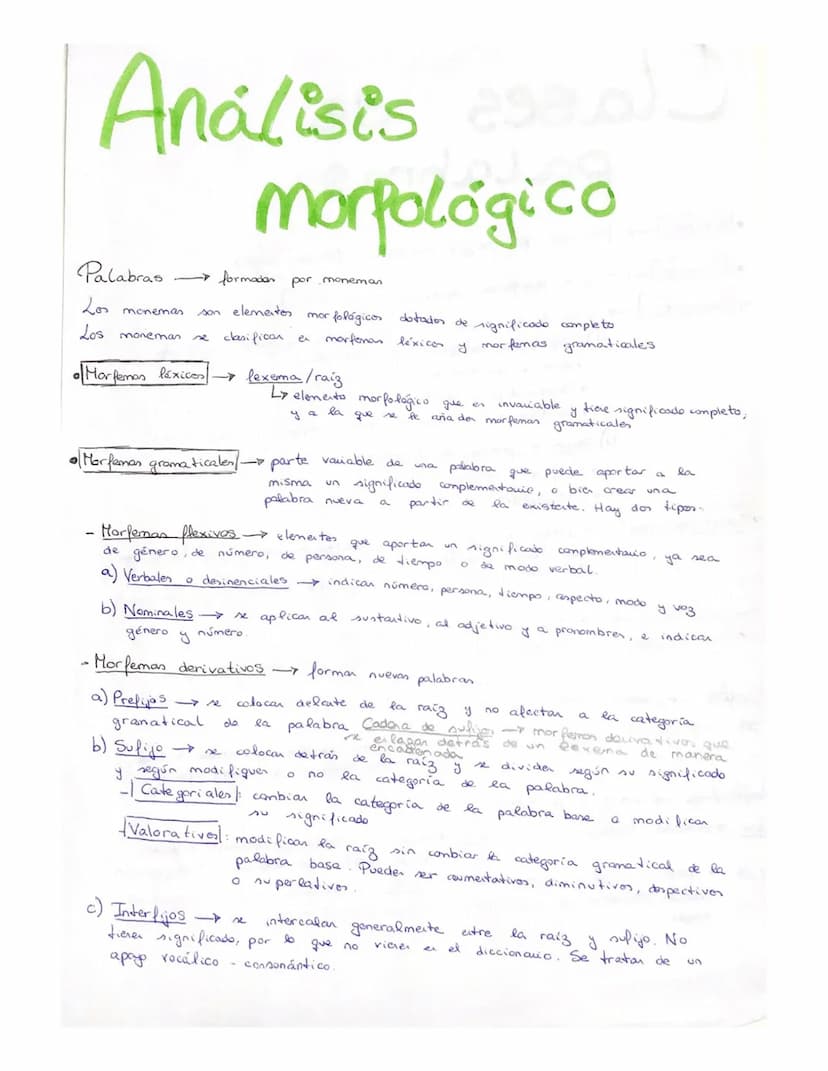 Análisis
morfológico
Palabras → formadas por monemas
Los monemas son elementos morfológicos dotados de significado completo
Los monemas se clasifican en morfemas léxicos y morfemas gramaticales
• Morfemas léxicos → lexema/raíz
↳ elemento morfológico que es invariable y tiene significado completo,
y a la que se le añaden morfemas gramaticales
• Morfemas gramaticales → parte variable de una palabra que puede aportar a la
misma un significado complementario, o bien crear una
palabra nueva a partir de la existente. Hay dos tipos.
- Morfemas flexivos → elementos que aportan un significado complementario, ya sea
de género, de número, de persona, de tiempo o de modo verbal.
a) Verbales o desinenciales → indican número, persona, tiempo, aspecto, modo y voz
b) Nominales → se aplican al sustantivo, al adjetivo y a pronombres, e indican
género y número.
- Morfemas derivativos → forman nuevas palabras
a) Prefijos → se colocan delante de la raíz y no afectan a la categoría
gramatical de la palabra Cadena de sufijos → morfemas derivativos que
se enlazan detrás de un lexema de manera
encadenada
b) Sufijo → se colocan detrás de la raíz y se dividen según su significado
y según modifiquen o no la categoría de la palabra.
- Categoriales: cambian la categoría de la palabra base o modifican
su significado
Valorativos: modifican la raíz sin cambiar la categoría gramatical de la
palabra base. Pueden ser aumentativos, diminutivos, despectivos
o superlativos.
c) Interfijos → se intercalan generalmente entre la raíz y sufijo. No
tienen significado, por lo que no vienen en el diccionario. Se tratan de un
apoyo vocálico - consonántico.